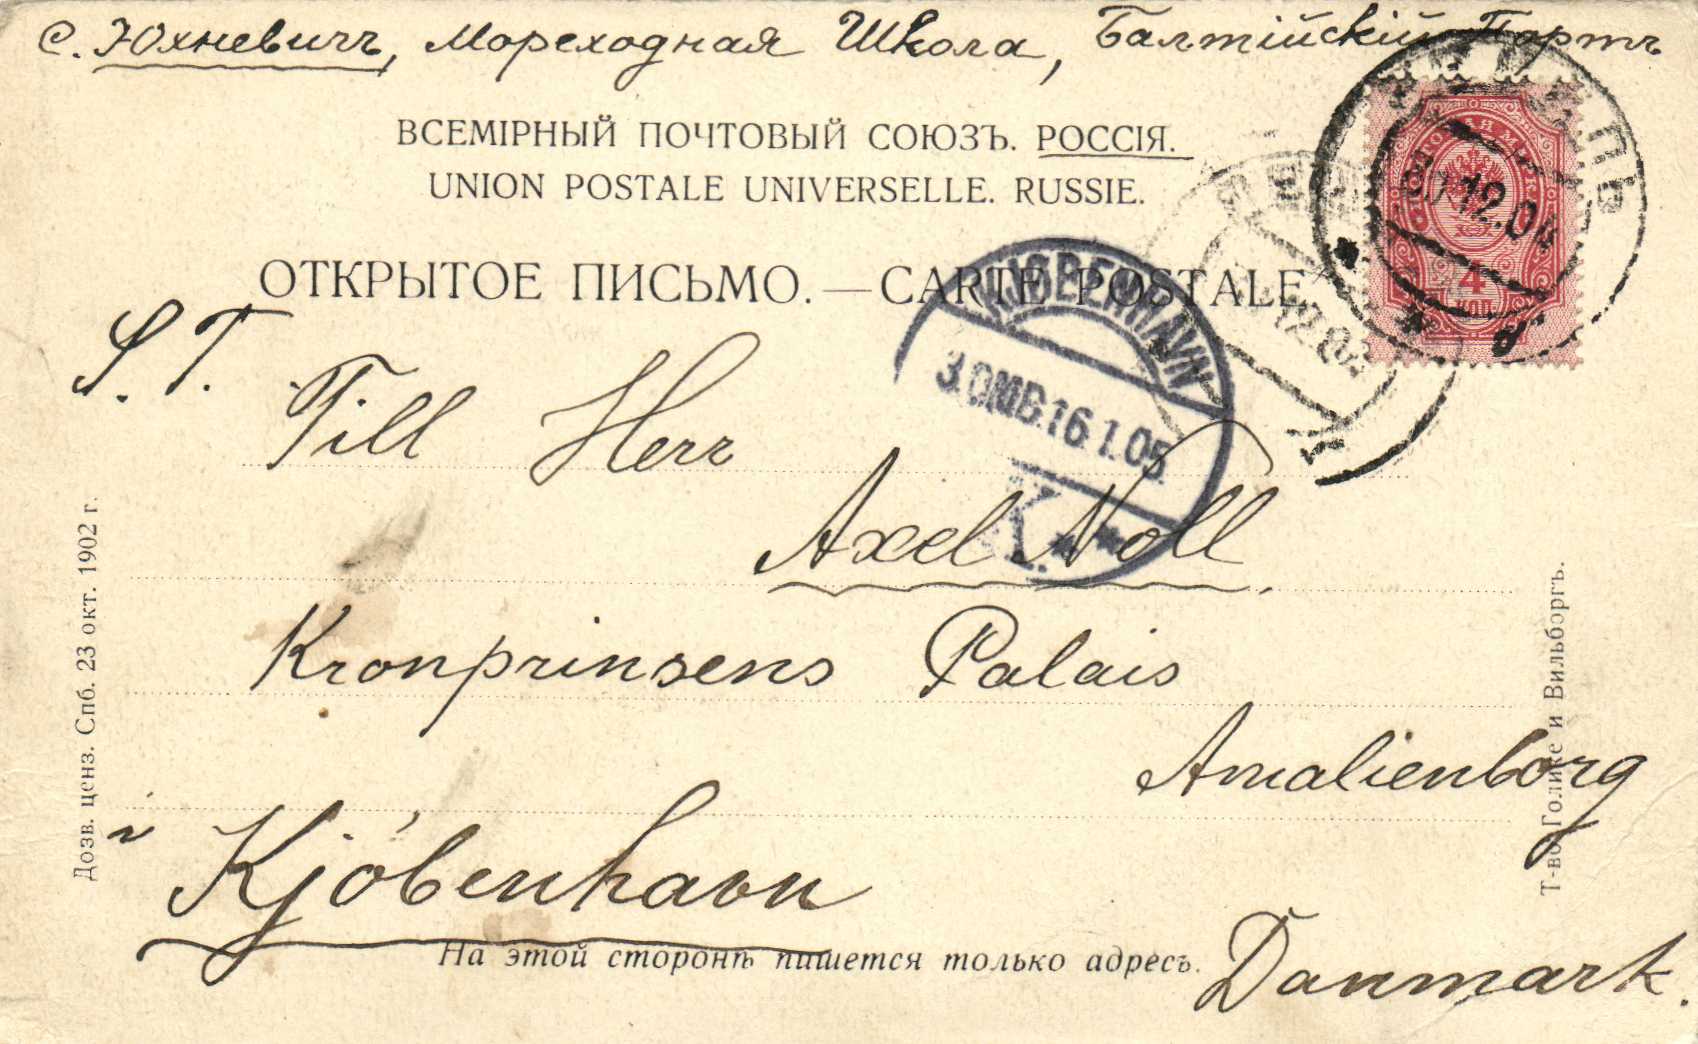 С. Юхневичъ, Мореходная Школа, Балтійскій Портъ
ВСЕМІРНЫЙ ПОЧТОВЫЙ СОЮЗЪ. РОССІЯ.
UNION POSTALE UNIVERSELLE. RUSSIE.
ОТКРЫТОЕ ПИСЬМО. — CARTE POSTALE
ПОЧТОВАЯ МАРКА
4
КОП.
12.04
KJØBENHAVN
3.OMB.16.1.05
K.
S. T.
Till Herr
Axel Noll
Kronprinsens Palais
Amalienborg
i Kjóbenhavn
Danmark.
На этой сторонѣ пишется только адресъ.
Дозв. ценз. Спб. 23 окт. 1902 г.
Т-во Голике и Вильборгъ.